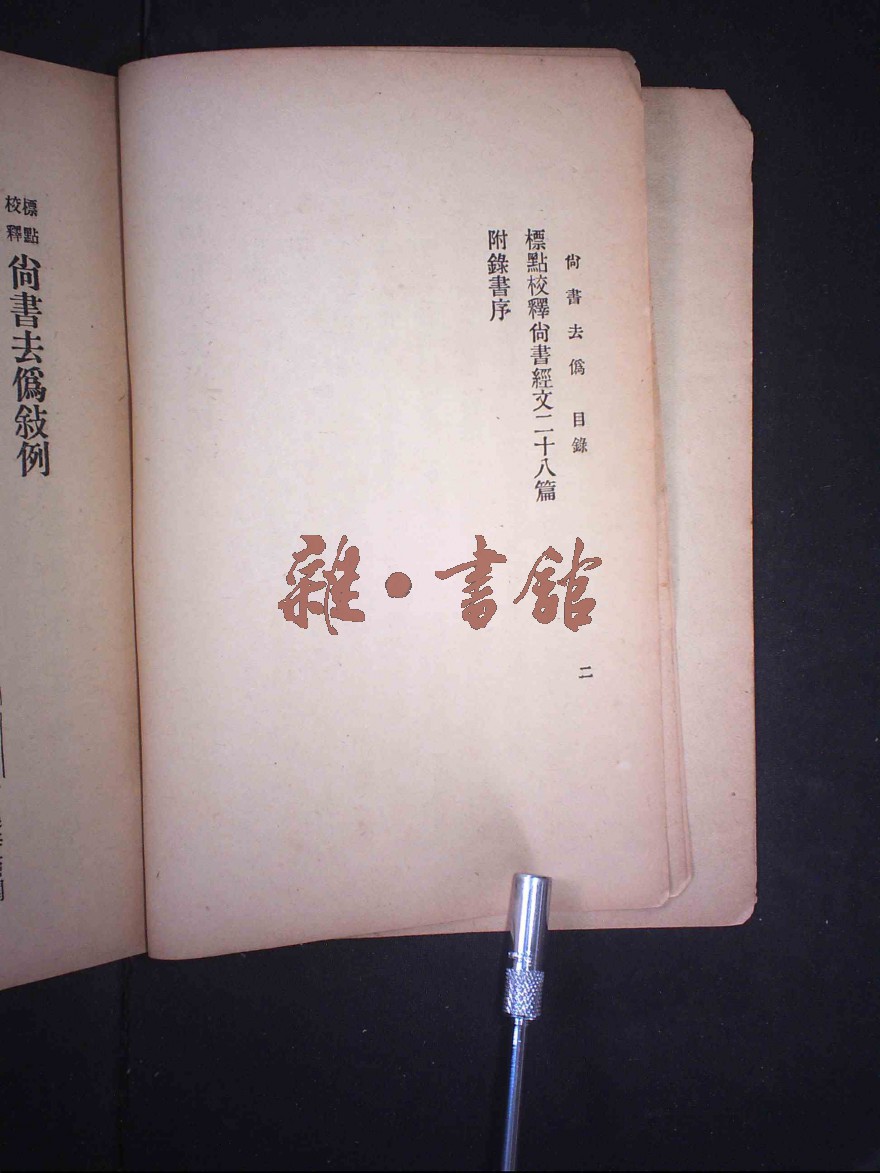 尙書去僞 目錄
標點校釋尙書經文二十八篇
附錄書序
二
雜·書館
標點
校釋
尙書去僞敍例